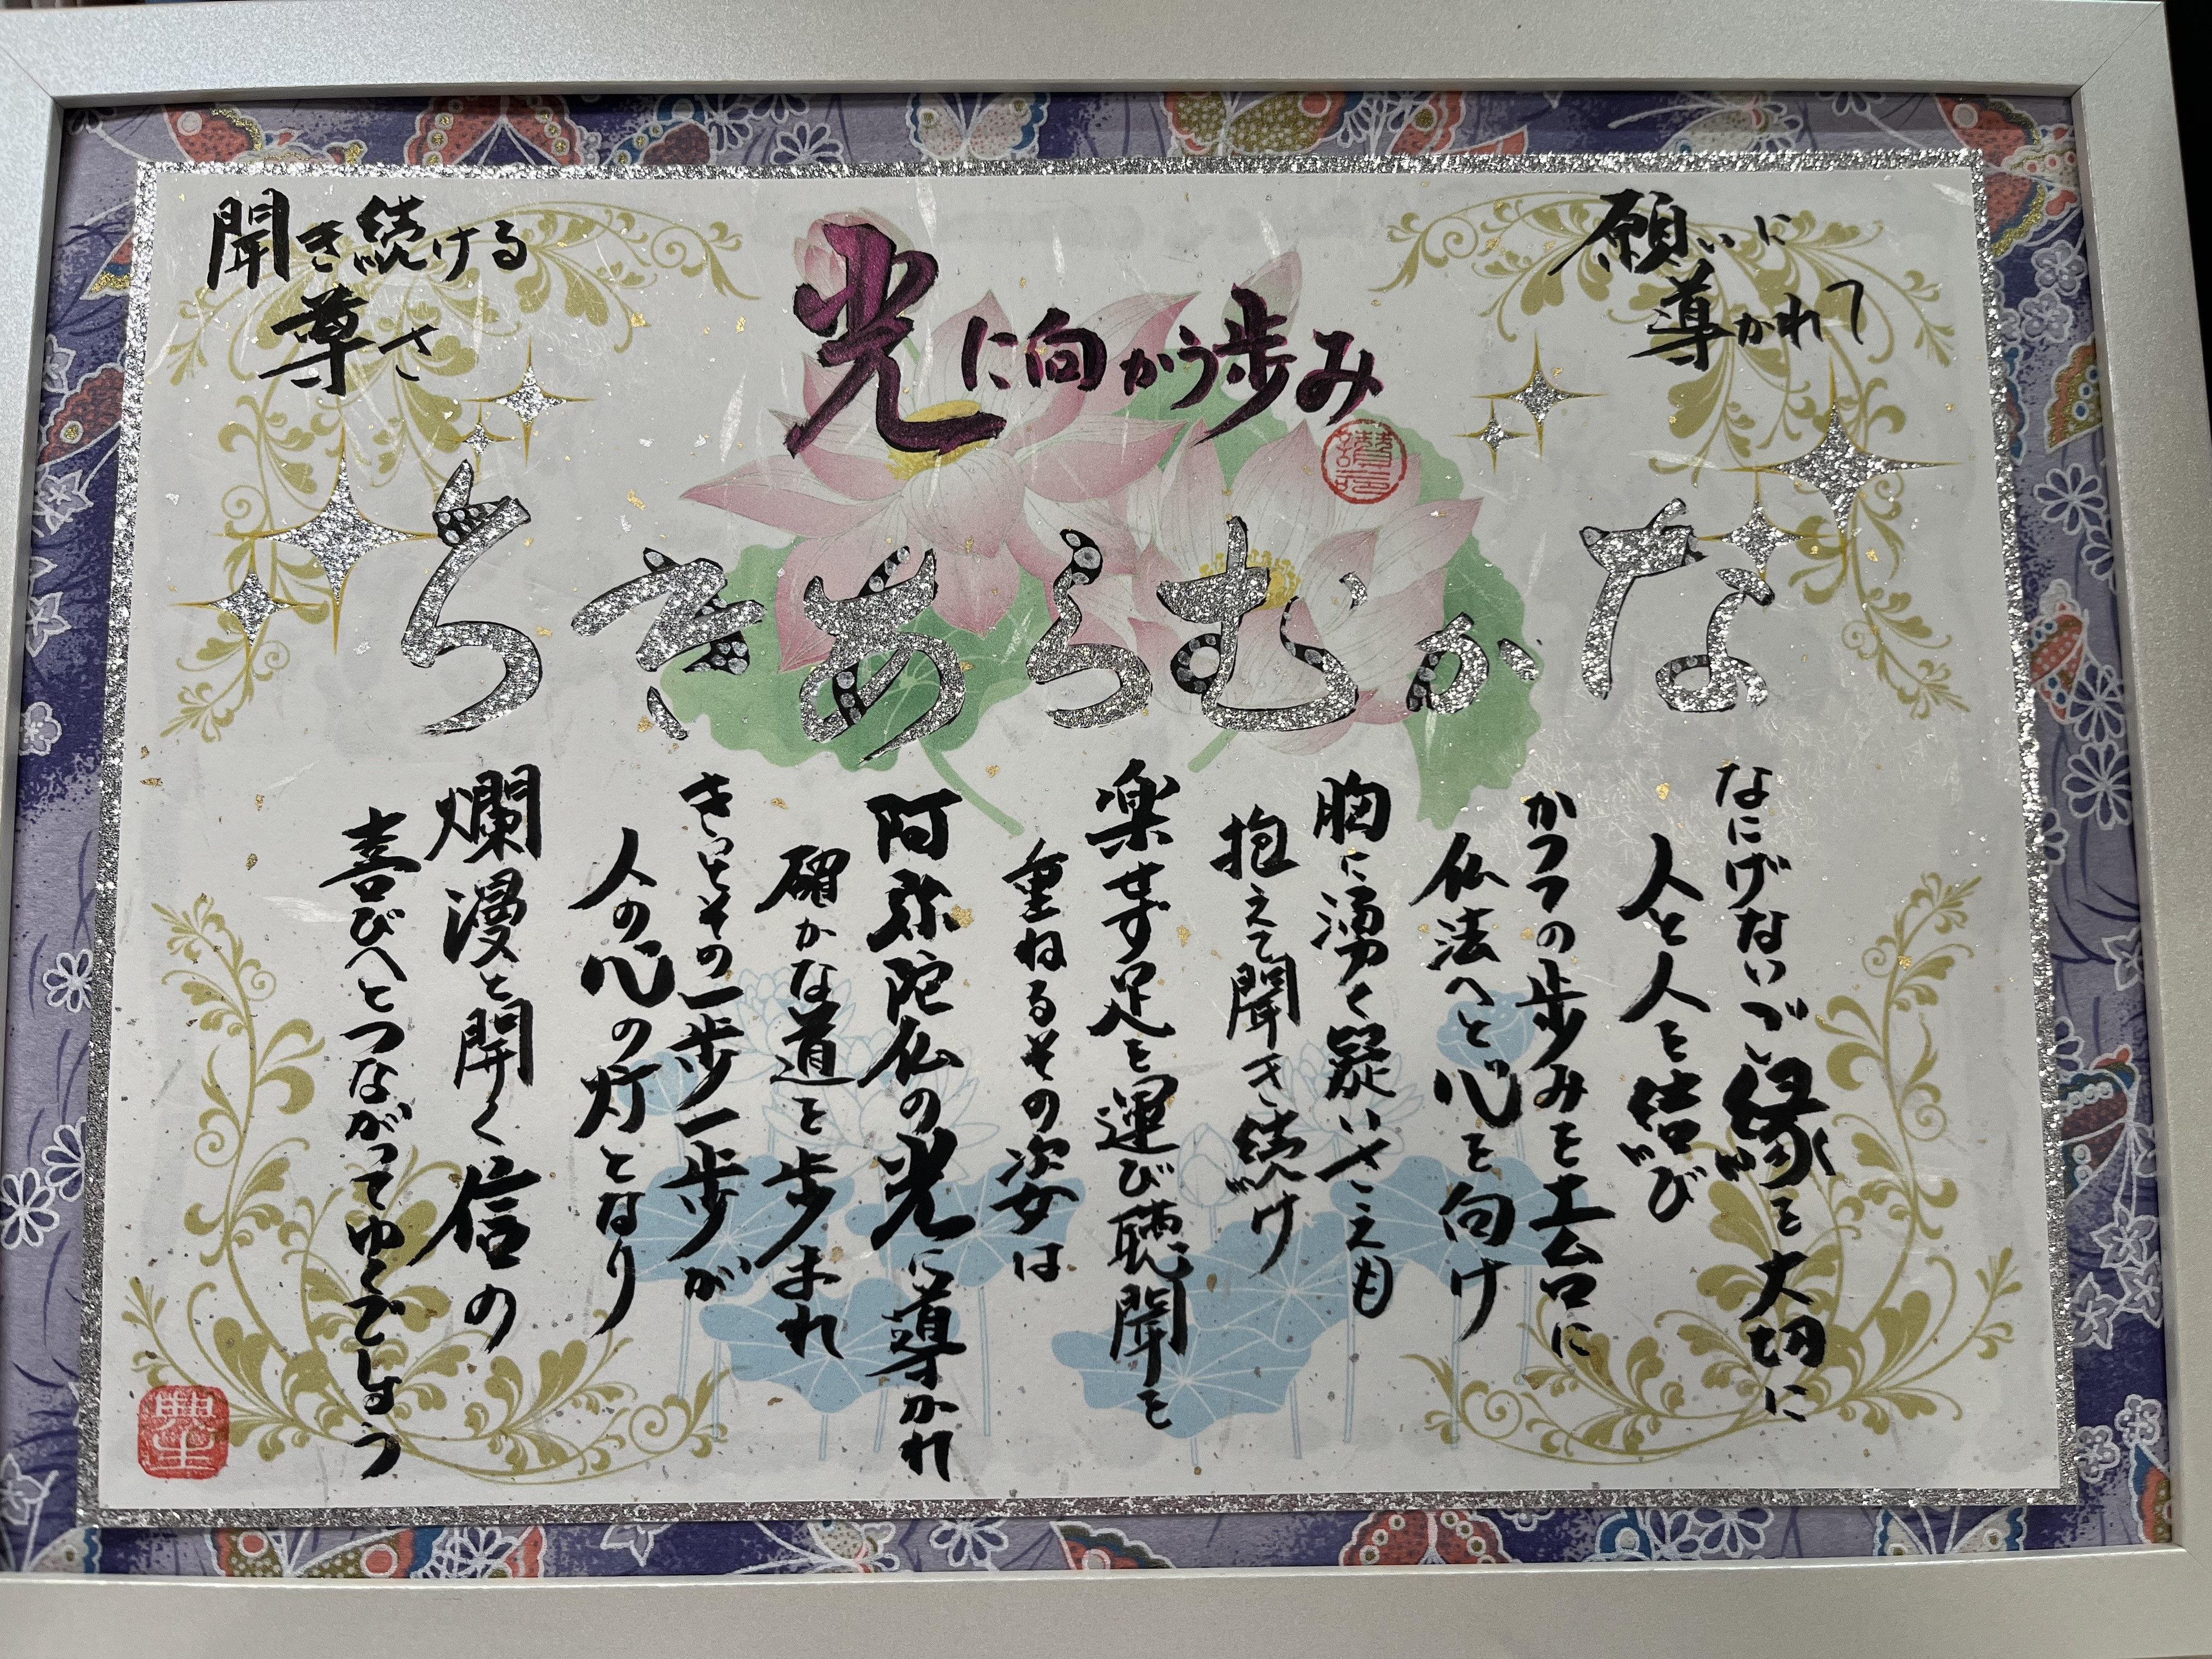 願いに
導かれて
光に向かう歩み
聞き続ける
尊さ
なかむらあきら
なにげないご縁を大切に
人と人を結び
かつての歩みを土台に
仏法へと心を向け
胸に湧く疑いさえも
抱えて聞き続け
楽せず足を運び聴聞を
重ねるその姿は
阿弥陀仏の光に導かれ
確かな道を歩まれ
きっとその一歩一歩が
人の心の灯となり
爛漫と開く信の
喜びへとつながってゆくでしょう